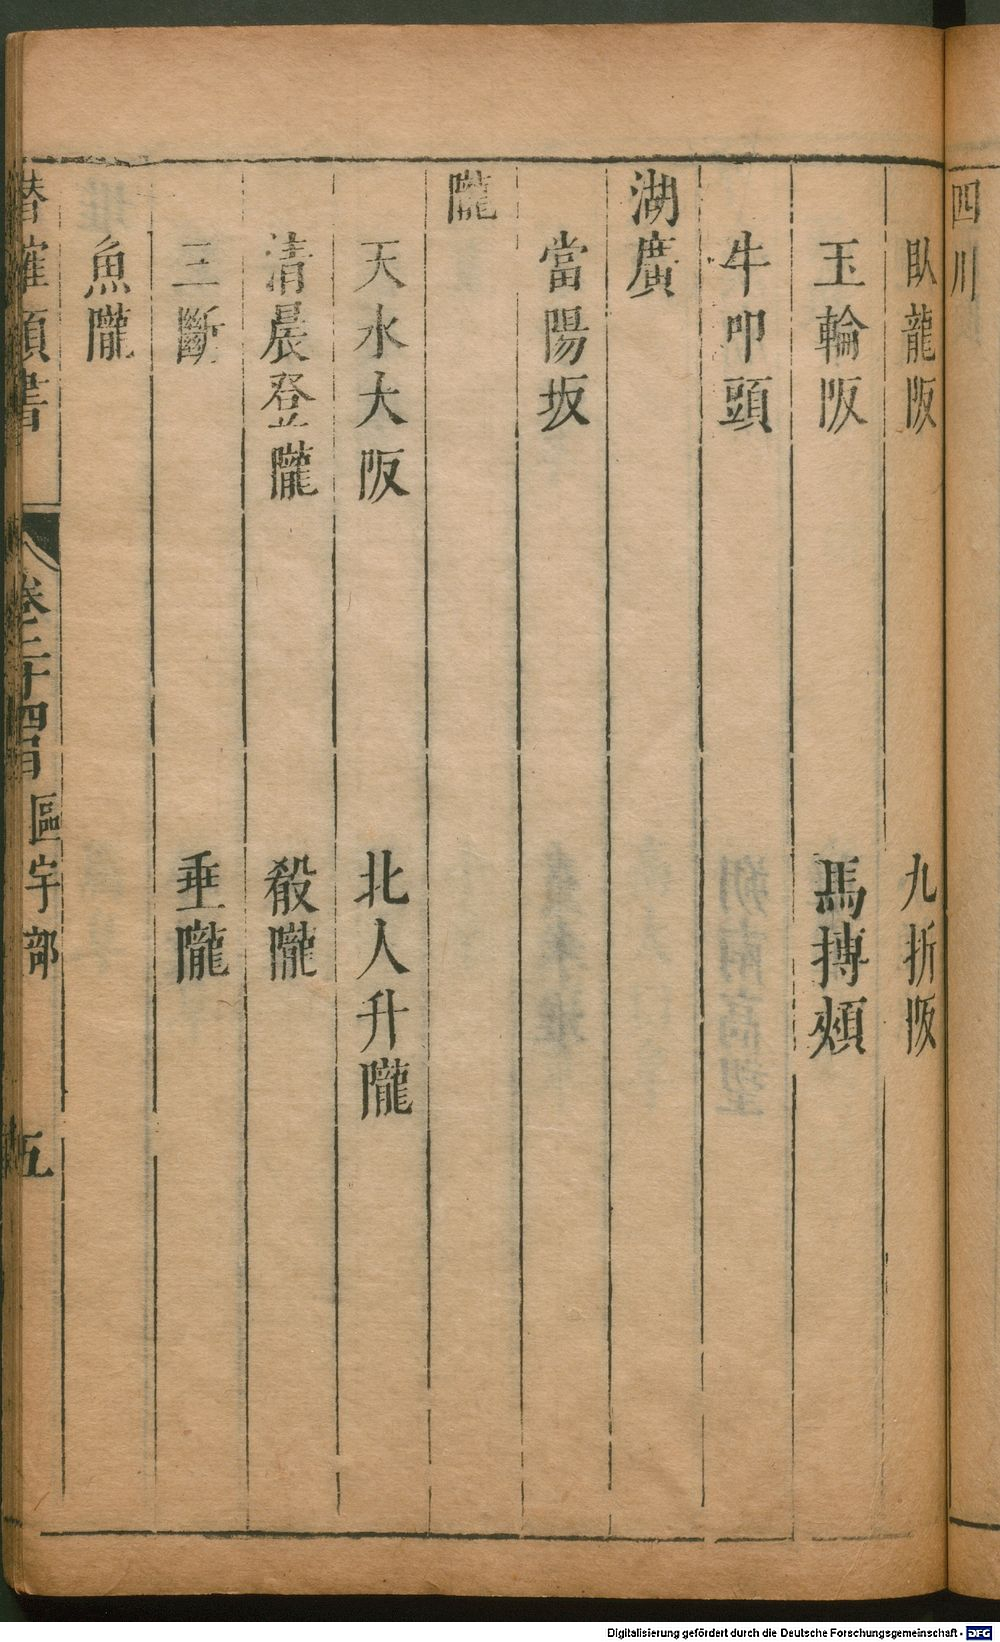 四川
臥龍阪
九折阪
玉輪阪
馬搏頰
牛叩頭
湖廣
當陽坂
隴
天水大阪
北人升隴
清晨登隴
殽隴
三斷
垂隴
魚隴
潛確類書
卷二十四
區宇部
五
Digitalisierung gefördert durch die Deutsche Forschungsgemeinschaft - DFG